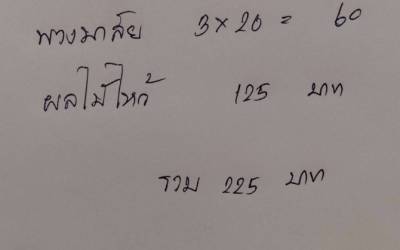 พวงมาลัย 3 × 20 = 60
ผลไม้ไหว้ 125 บาท
รวม 225 บาท